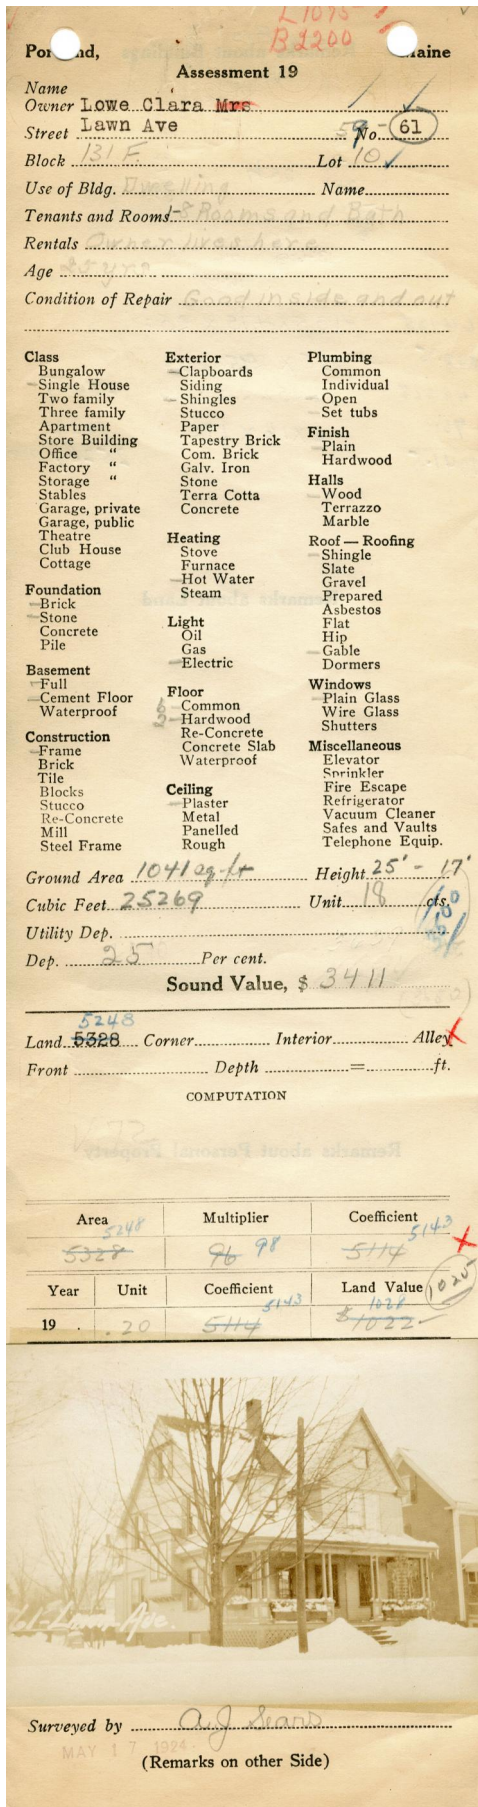 L 1075
B 2200
Portland, Maine
Assessment 19
Name
Owner Lowe Clara Mrs
Street Lawn Ave 59- No. 61
Block 131 F Lot 10
Use of Bldg. Dwelling Name
Tenants and Rooms 1-8 Rooms and Bath
Rentals Owner lives here
Age 25 yrs.
Condition of Repair Good inside and out
Class
Bungalow
Single House
Two family
Three family
Apartment
Store Building
Office "
Factory "
Storage "
Stables
Garage, private
Garage, public
Theatre
Club House
Cottage
Foundation
Brick
Stone
Concrete
Pile
Basement
Full
Cement Floor
Waterproof
Construction
Frame
Brick
Tile
Blocks
Stucco
Re-Concrete
Mill
Steel Frame
Exterior
Clapboards
Siding
Shingles
Stucco
Paper
Tapestry Brick
Com. Brick
Galv. Iron
Stone
Terra Cotta
Concrete
Heating
Stove
Furnace
Hot Water
Steam
Light
Oil
Gas
Electric
Floor
6 Common
2 Hardwood
Re-Concrete
Concrete Slab
Waterproof
Ceiling
Plaster
Metal
Panelled
Rough
Plumbing
Common
Individual
Open
Set tubs
Finish
Plain
Hardwood
Halls
Wood
Terrazzo
Marble
Roof — Roofing
Shingle
Slate
Gravel
Prepared
Asbestos
Flat
Hip
Gable
Dormers
Windows
Plain Glass
Wire Glass
Shutters
Miscellaneous
Elevator
Sprinkler
Fire Escape
Refrigerator
Vacuum Cleaner
Safes and Vaults
Telephone Equip.
Ground Area 1041 sq-ft Height 25' - 17'
Cubic Feet 25269 Unit 18 cts.
Utility Dep.
Dep. 25 Per cent.
Sound Value, $ 3411
5248
Land 5328 Corner Interior Alley
Front Depth = ft.
COMPUTATION
Area Multiplier Coefficient
5248 98 5143
5328 96 5114
Year Unit Coefficient Land Value 1025
5143 1028
19 . .20 5114 $1022
61-Lawn Ave.
Surveyed by A. J. Sears
MAY 17 1924
(Remarks on other Side)